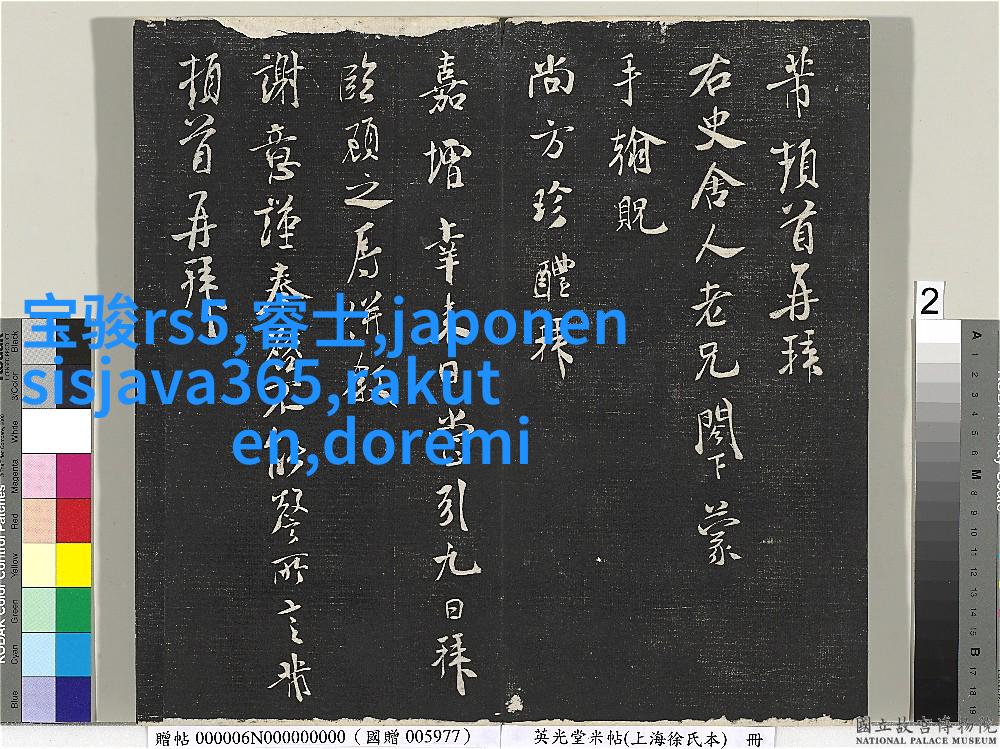 芾頓首再拜
右史舍人老兄閣下蒙
手翰貺
尚方珍醴拜
嘉增幸来日當引九日拜
臨頋之辱併叙
謝意謹奉啓不能罄所言芾
頓首再拜
宝骏rs5,睿士,japonen
sisjava365,rakut
en,doremi
2
贈帖 000006N000000000 (國贈 005977)
英光堂米帖(上海徐氏本) 冊
國立故宮博物院
NATIONAL PALACE MUSEUM
Black
3/Color
White
Magenta
Red
Yellow
Green
Cyan
Blue
A
1
2
3
4
5
6
M
8
9
10
11
12
13
14
15
B
17
18
19